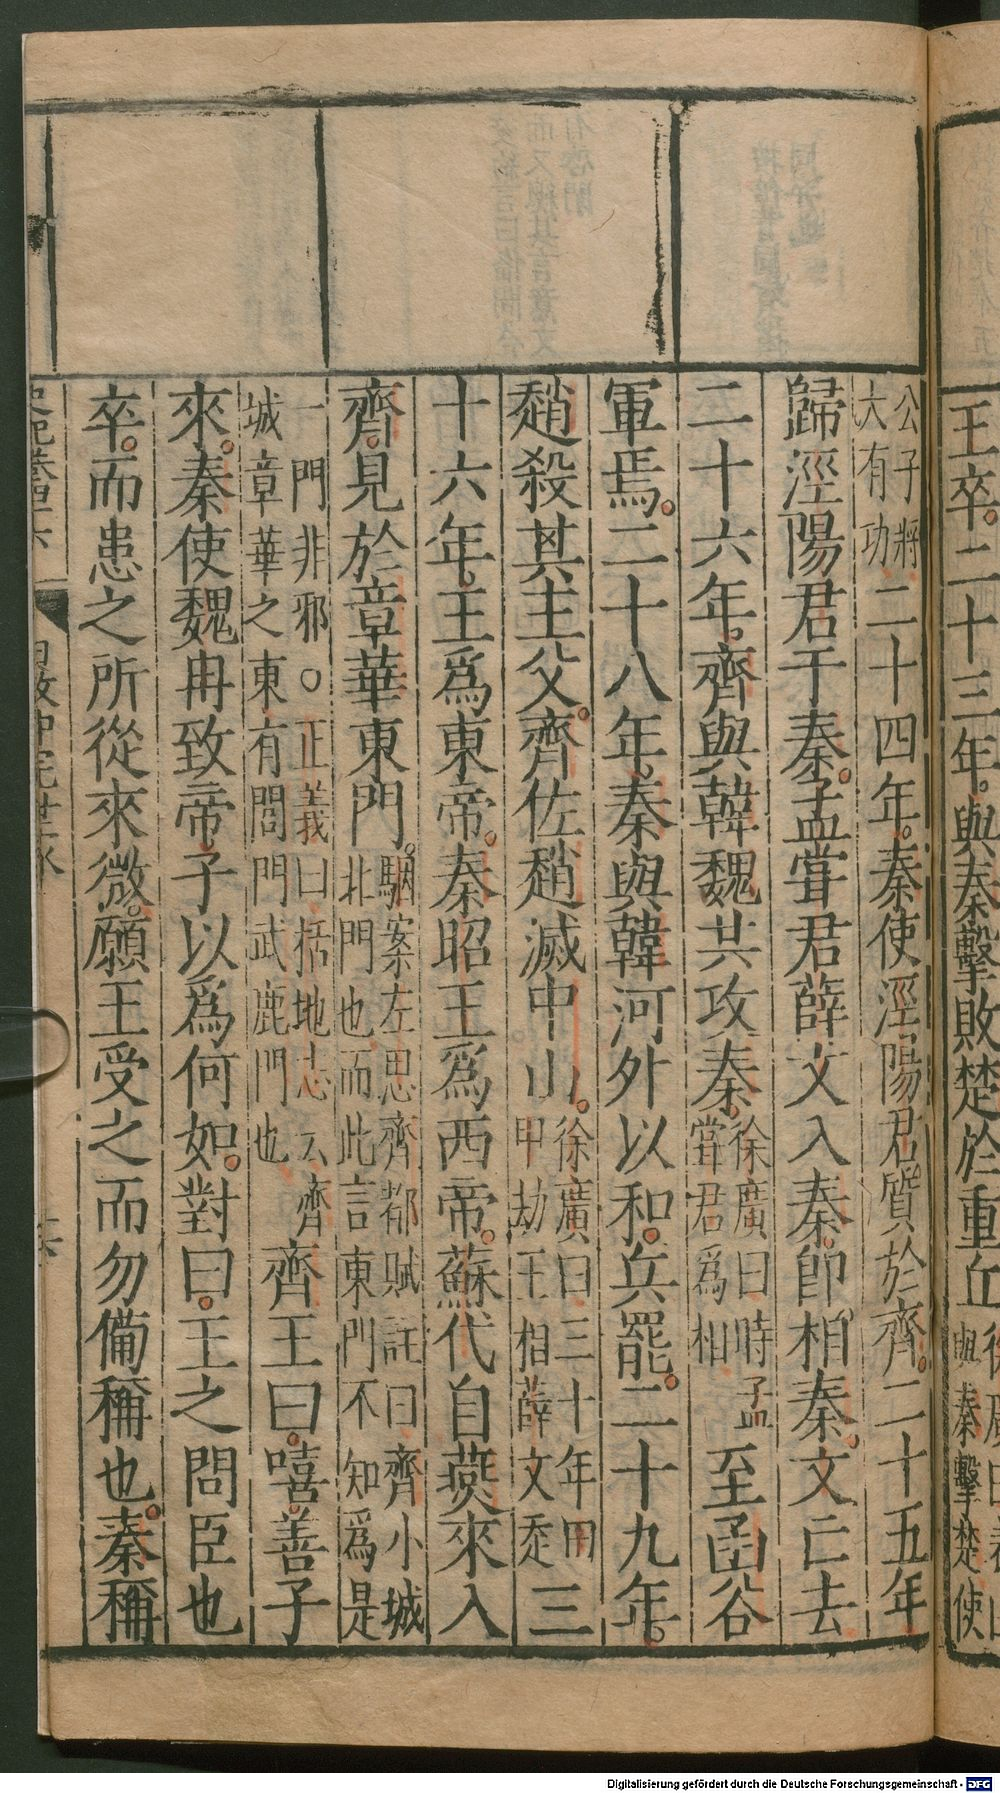 王卒。二十三年。與秦擊敗楚於重丘
與秦擊楚使
公子將
大有功
二十四年。秦使涇陽君質於齊。二十五年
歸涇陽君于秦。孟嘗君薛文入秦。卽相秦。文亡去
二十六年。齊與韓魏共攻秦。
徐廣曰時孟
嘗君爲相
至函谷
軍焉。二十八年。秦與韓河外以和。兵罷。二十九年。
趙殺其主父。齊佐趙滅中山。
徐廣曰三十年田
甲劫王相薛文走
三
十六年。王爲東帝。秦昭王爲西帝。蘇代自燕來入
齊。見於章華東門。
駰案左思齊都賦註曰齊小城
北門也而此言東門不知爲是
一門非邪○正義曰括地志云齊
城章華之東有閭門武鹿門也
齊王曰。嘻。善子
來。秦使魏冉致帝。子以爲何如。對曰。王之問臣也
卒。而患之所從來微。願王受之而勿備稱也。秦稱
史記卷四十六
田敬仲完世家
十六
Digitalisierung gefördert durch die Deutsche Forschungsgemeinschaft - DFG